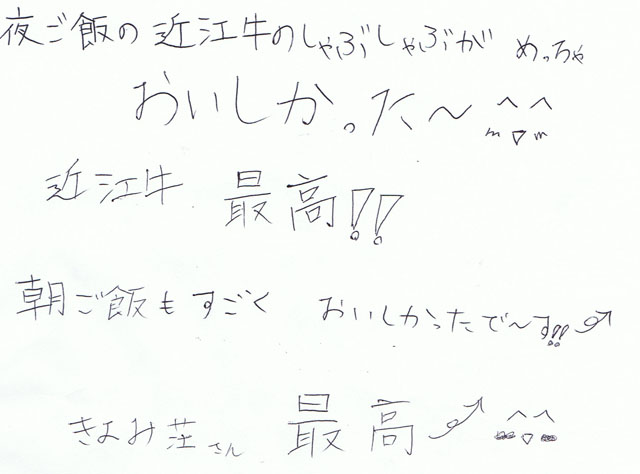 夜ご飯の近江牛のしゃぶしゃぶが めっちゃ
おいしかった〜
近江牛 最高!!
朝ご飯もすごく おいしかったで〜す!!
きよみ荘さん 最高